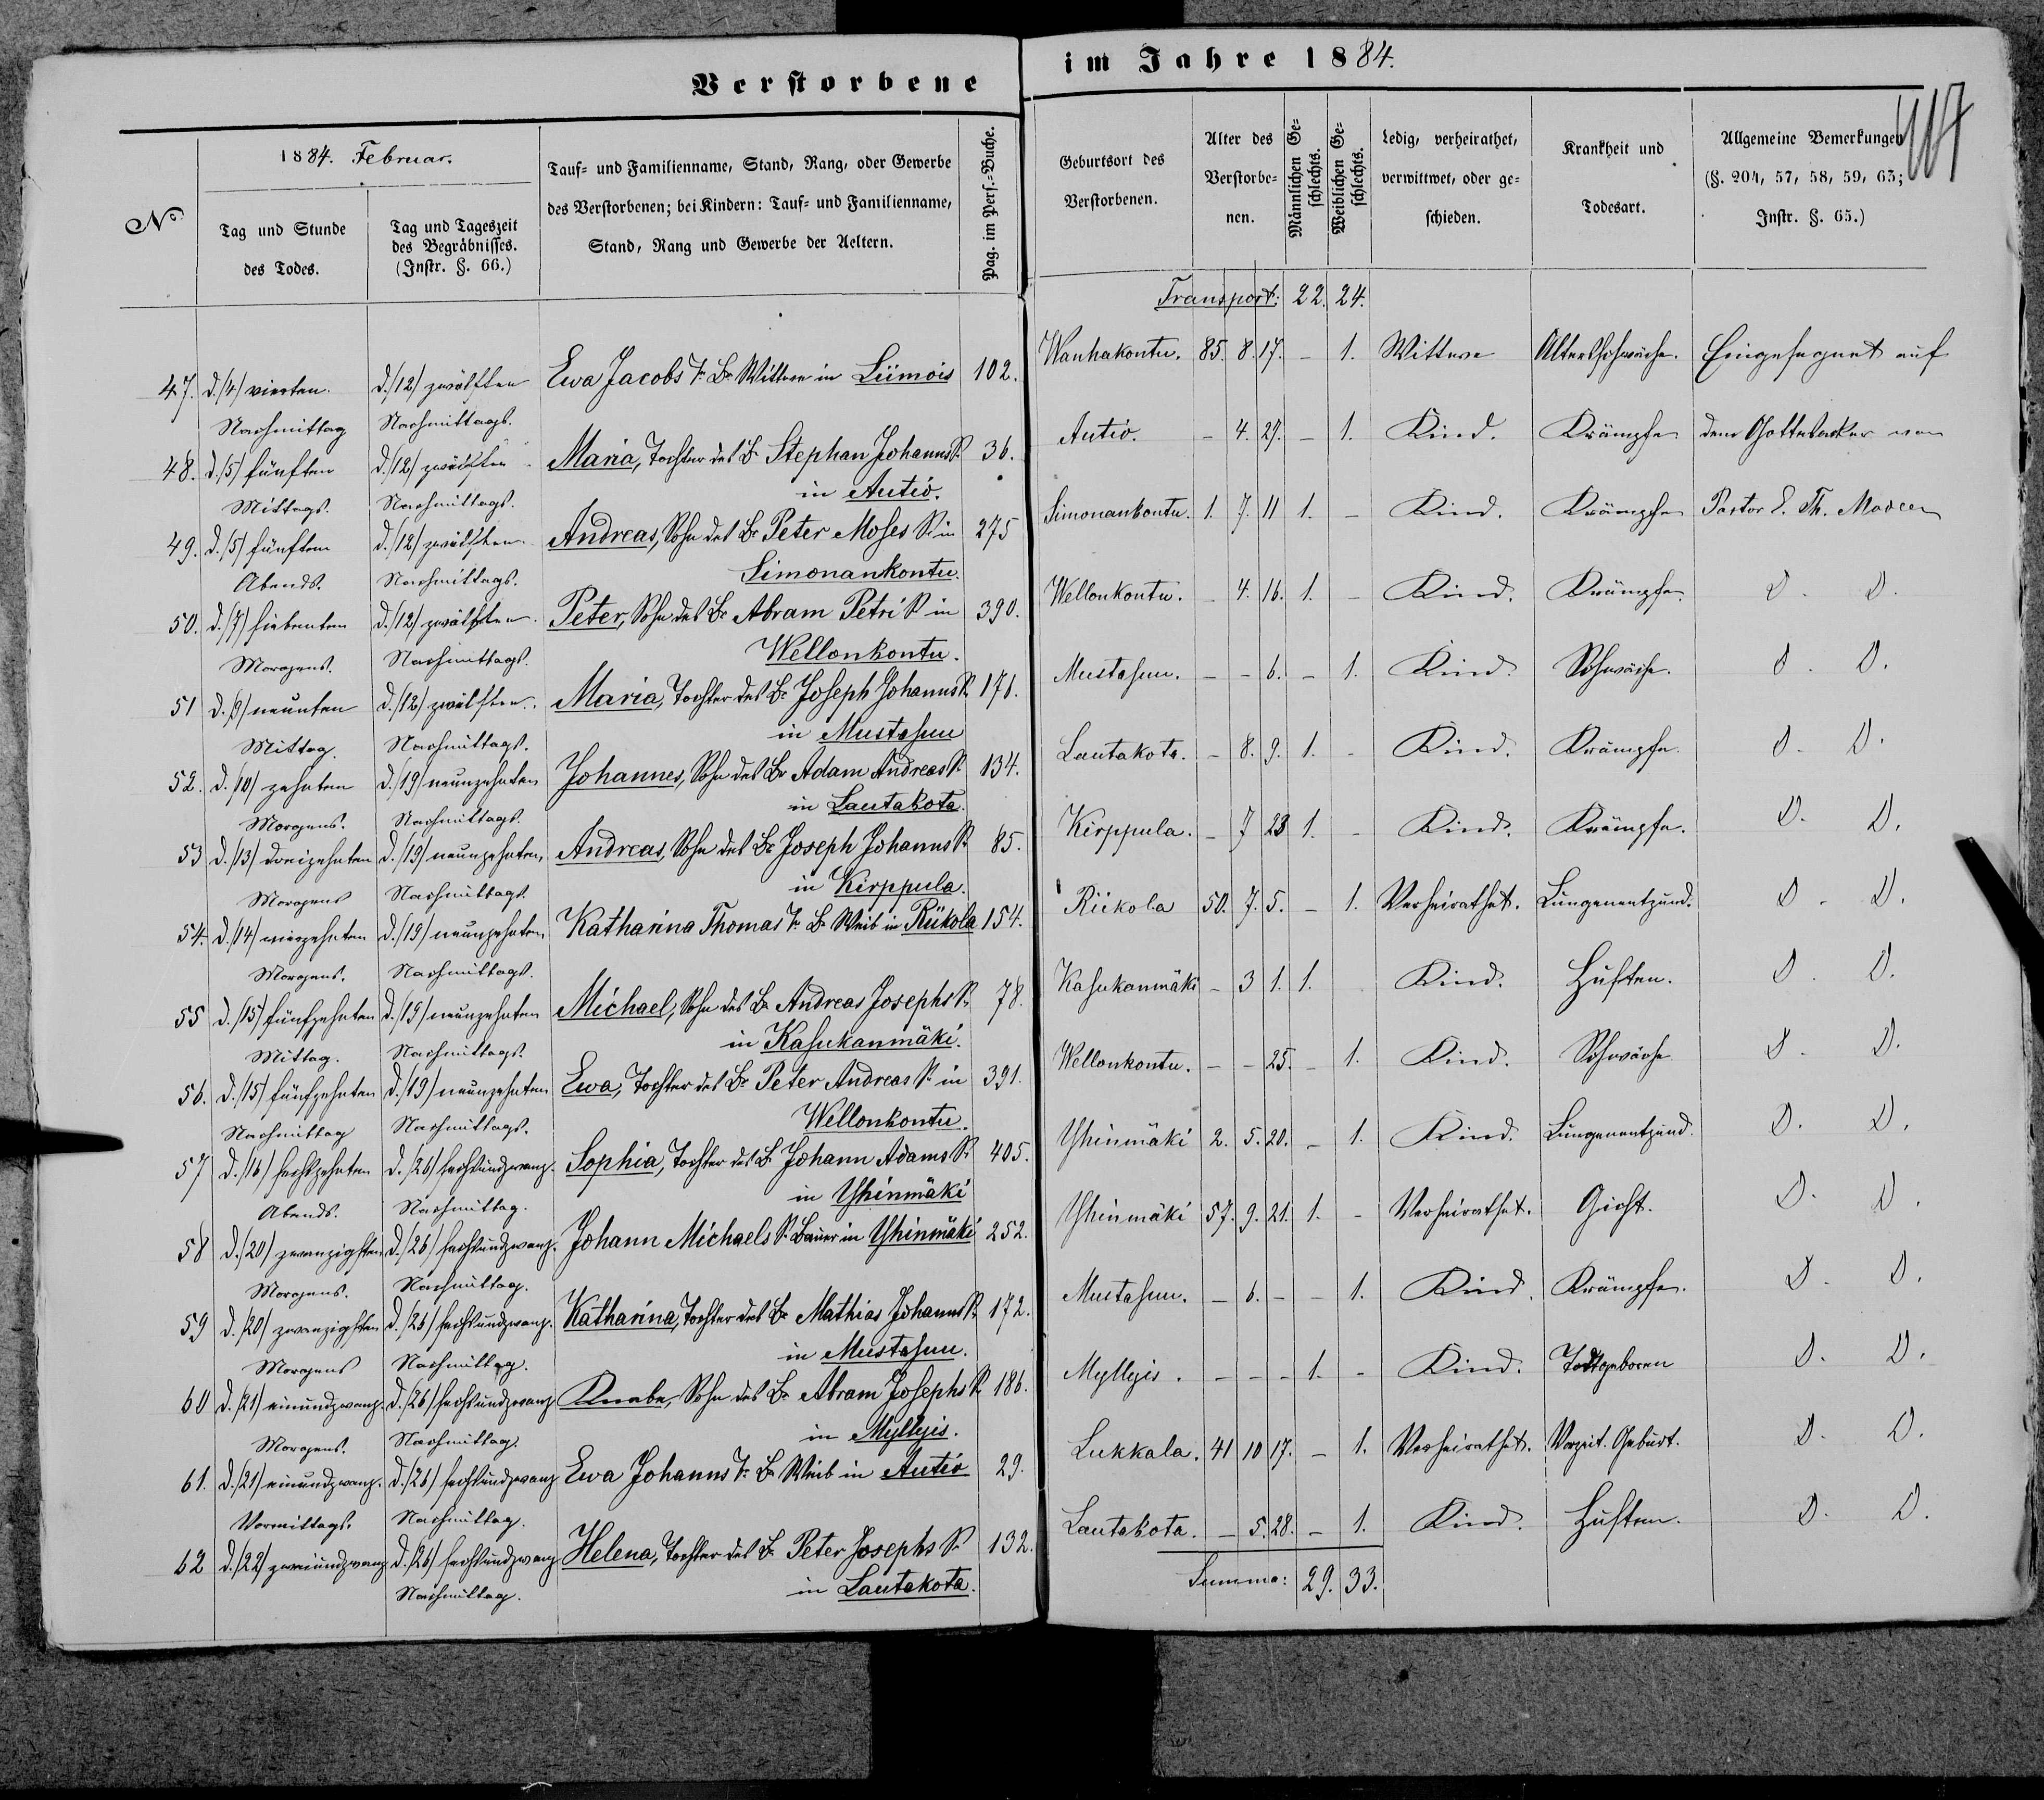 Verstorbene im Jahre 1884.
117
1884. Februar.
No
Tag und Stunde
des Todes.
Tag und Tageszeit
des Begräbnisses.
(Instr. §. 66.)
Tauf- und Familienname, Stand, Rang, oder Gewerbe
des Verstorbenen; bei Kindern: Tauf- und Familienname,
Stand, Rang und Gewerbe der Aeltern.
Pag. im Pers.-Buche.
Geburtsort des
Verstorbenen.
Alter des
Verstorbe-
nen.
Männlichen Ge-
schlechts.
Weiblichen Ge-
schlechts.
Ledig, verheirathet,
verwittwet, oder ge-
schieden.
Krankheit und
Todesart.
Allgemeine Bemerkungen
(§. 204, 57, 58, 59, 63;
Instr. §. 65.)
Transport: 22. 24.
47. d. (4) vierten d. (12) zwölften Ewa Jacobs T. Br Wittwe in Liimois 102. Wanhakontu. 85. 8. 17. – 1. Wittwe Altersschwäche. Eingesegnet auf
Nachmittag Nachmittags.
48. d. (5) fünften d. (12) zwölften Maria, Tochter des Br Stephan Johanns S. 36. Autio. – 4. 29. – 1. Kind. Krämpfe dem Gottesacker von
Mittags. Nachmittags. in Autio.
49. d. (5) fünften d. (12) zwölften Andreas, Sohn des Br Peter Moses S. in 275 Simonankontu. 1. 7. 11 1. – Kind. Krämpfe Pastor
Abends. Nachmittags. Simonankontu.
50. d. (7) siebenten d. (12) zwölften. Peter, Sohn des Br Abram Petri S. in 390. Wellonkontu. – 4. 16. 1. – Kind. Krämpfe. D. D.
Morgens. Nachmittags. Wellonkontu.
51 d. (9) neunten d. (12) zwölften. Maria, Tochter des Br Joseph Johanns S. 171. Mustasuu. – – 6. – 1. Kind. Schwäche. D. D.
Mittag. Nachmittags. in Mustasuu
52. d. (10) zehnten d. (19) neunzehnten Johannes, Sohn des Br Adam Andreas S. 134. Lautakota. – 8. 9. 1. – Kind. Krämpfe. D. D.
Morgens. Nachmittags. in Lautakota.
53 d. (13) dreizehnten d. (19) neunzehnten, Andreas, Sohn des Br Joseph Johanns S. 85. Kirppula. – 7 23 1. – Kind. Krämpfe. D. D.
Morgens Nachmittags. in Kirppula.
54. d. (14) vierzehnten d. (19) neunzehnten Katharina Thomas T. Br Weib in Riikola 154. Riikola 50. 7. 5. – 1. Verheirathet. Lungenentzünd. D. D.
Morgens. Nachmittags.
55 d. (15) fünfzehnten d. (19) neunzehnten Michael, Sohn des Br Andreas Josephs S. 78. Kasukanmäki – 3 1. 1. Kind. Husten. D. D.
Mittag. Nachmittags. in Kasukanmäki.
56. d. (15) fünfzehnten d. (19) neunzehnten Ewa, Tochter des Br Peter Andreas S. in 391. Wellonkontu. – – 25. – 1. Kind. Schwäche D. D.
Nachmittag Nachmittags. Wellonkontu.
57 d. (16) sechszehnten d. (26) sechsundzwanz. Sophia, Tochter des Br Johann Adams S. 405. Yhinmäki 2. 5. 20. – 1. Kind. Lungenentzünd. D. D.
Abends. Nachmittag. in Yhinmäki
58 d. (20) zwanzigsten d. (26) sechsundzwanz. Johann Michaels S. Bauer in Yhinmäki 252. Yhinmäki 57. 9. 21. 1. – Verheirathet. Gicht. D. D.
Morgens. Nachmittag.
59 d. (20) zwanzigsten d. (26) sechsundzwanz. Katharina, Tochter des Br Mathias Johanns S. 172. Mustasuu. – 6. – – 1. Kind. Krämpfe. D. D.
Morgens Nachmittag. in Mustasuu.
60 d. (21) einundzwanz. d. (26) sechsundzwanz Knabe, Sohn des Br Abram Josephs S. 186. Myllyis. – – – 1. – Kind. Todtgeboren D. D.
Morgens. Nachmittag. in Myllyis.
61. d. (21) einundzwanz. d. (26) sechsundzwanz Ewa Johanns T. Br Weib in Autio 29. Lukkala. 41 10 17. – 1. Verheirathet. Vorzeit. Geburt. D. D.
Vormittags. Nachmittag.
62 d. (22) zweiundzwanz d. (26) sechsundzwanz Helena, Tochter des Br Peter Josephs S. 132. Lautakota. – 5. 28. – 1. Kind. Husten. D. D.
Nachmittag. in Lautakota.
Summa: 29. 33.